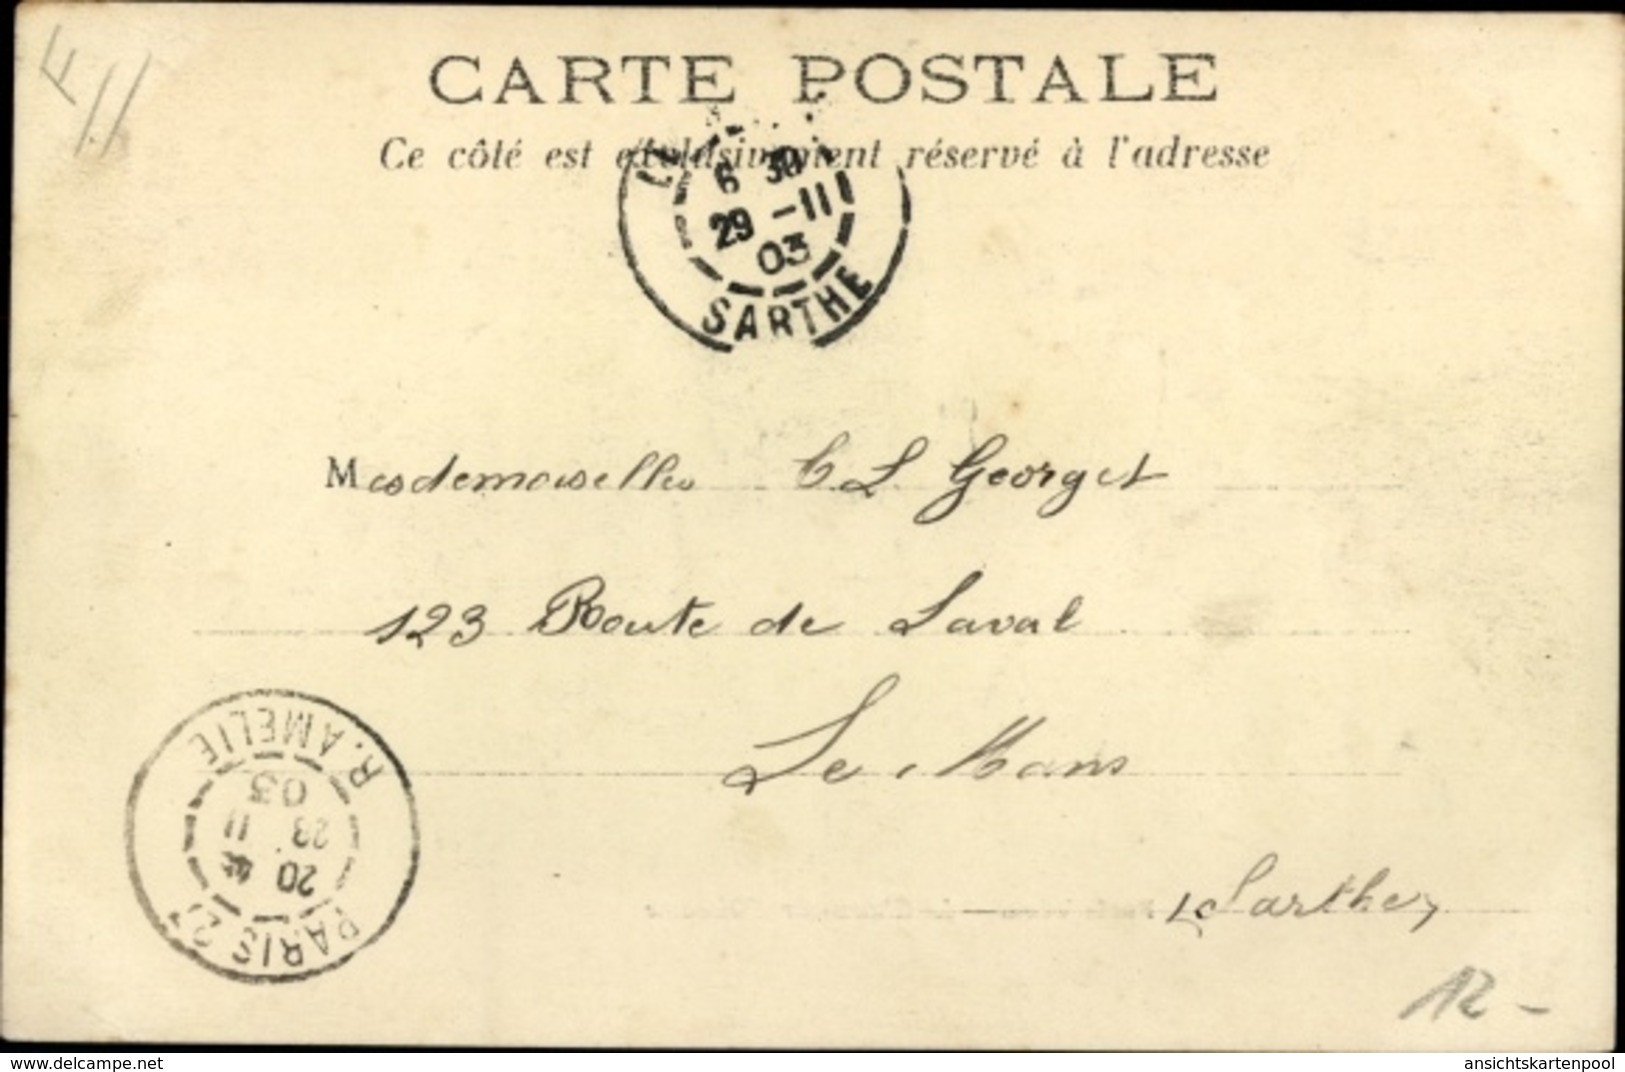 F //
CARTE POSTALE
Ce côté est exclusivement réservé à l'adresse
LE
6 30
29 -11
03
SARTHE
Mesdemoiselles C L Georget
123 Route de Laval
Le Mans
(Sarthe)
PARIS 27
20
28 11
03
R. AMELIE
12 -
delcampe.net
ansichtskartenpool